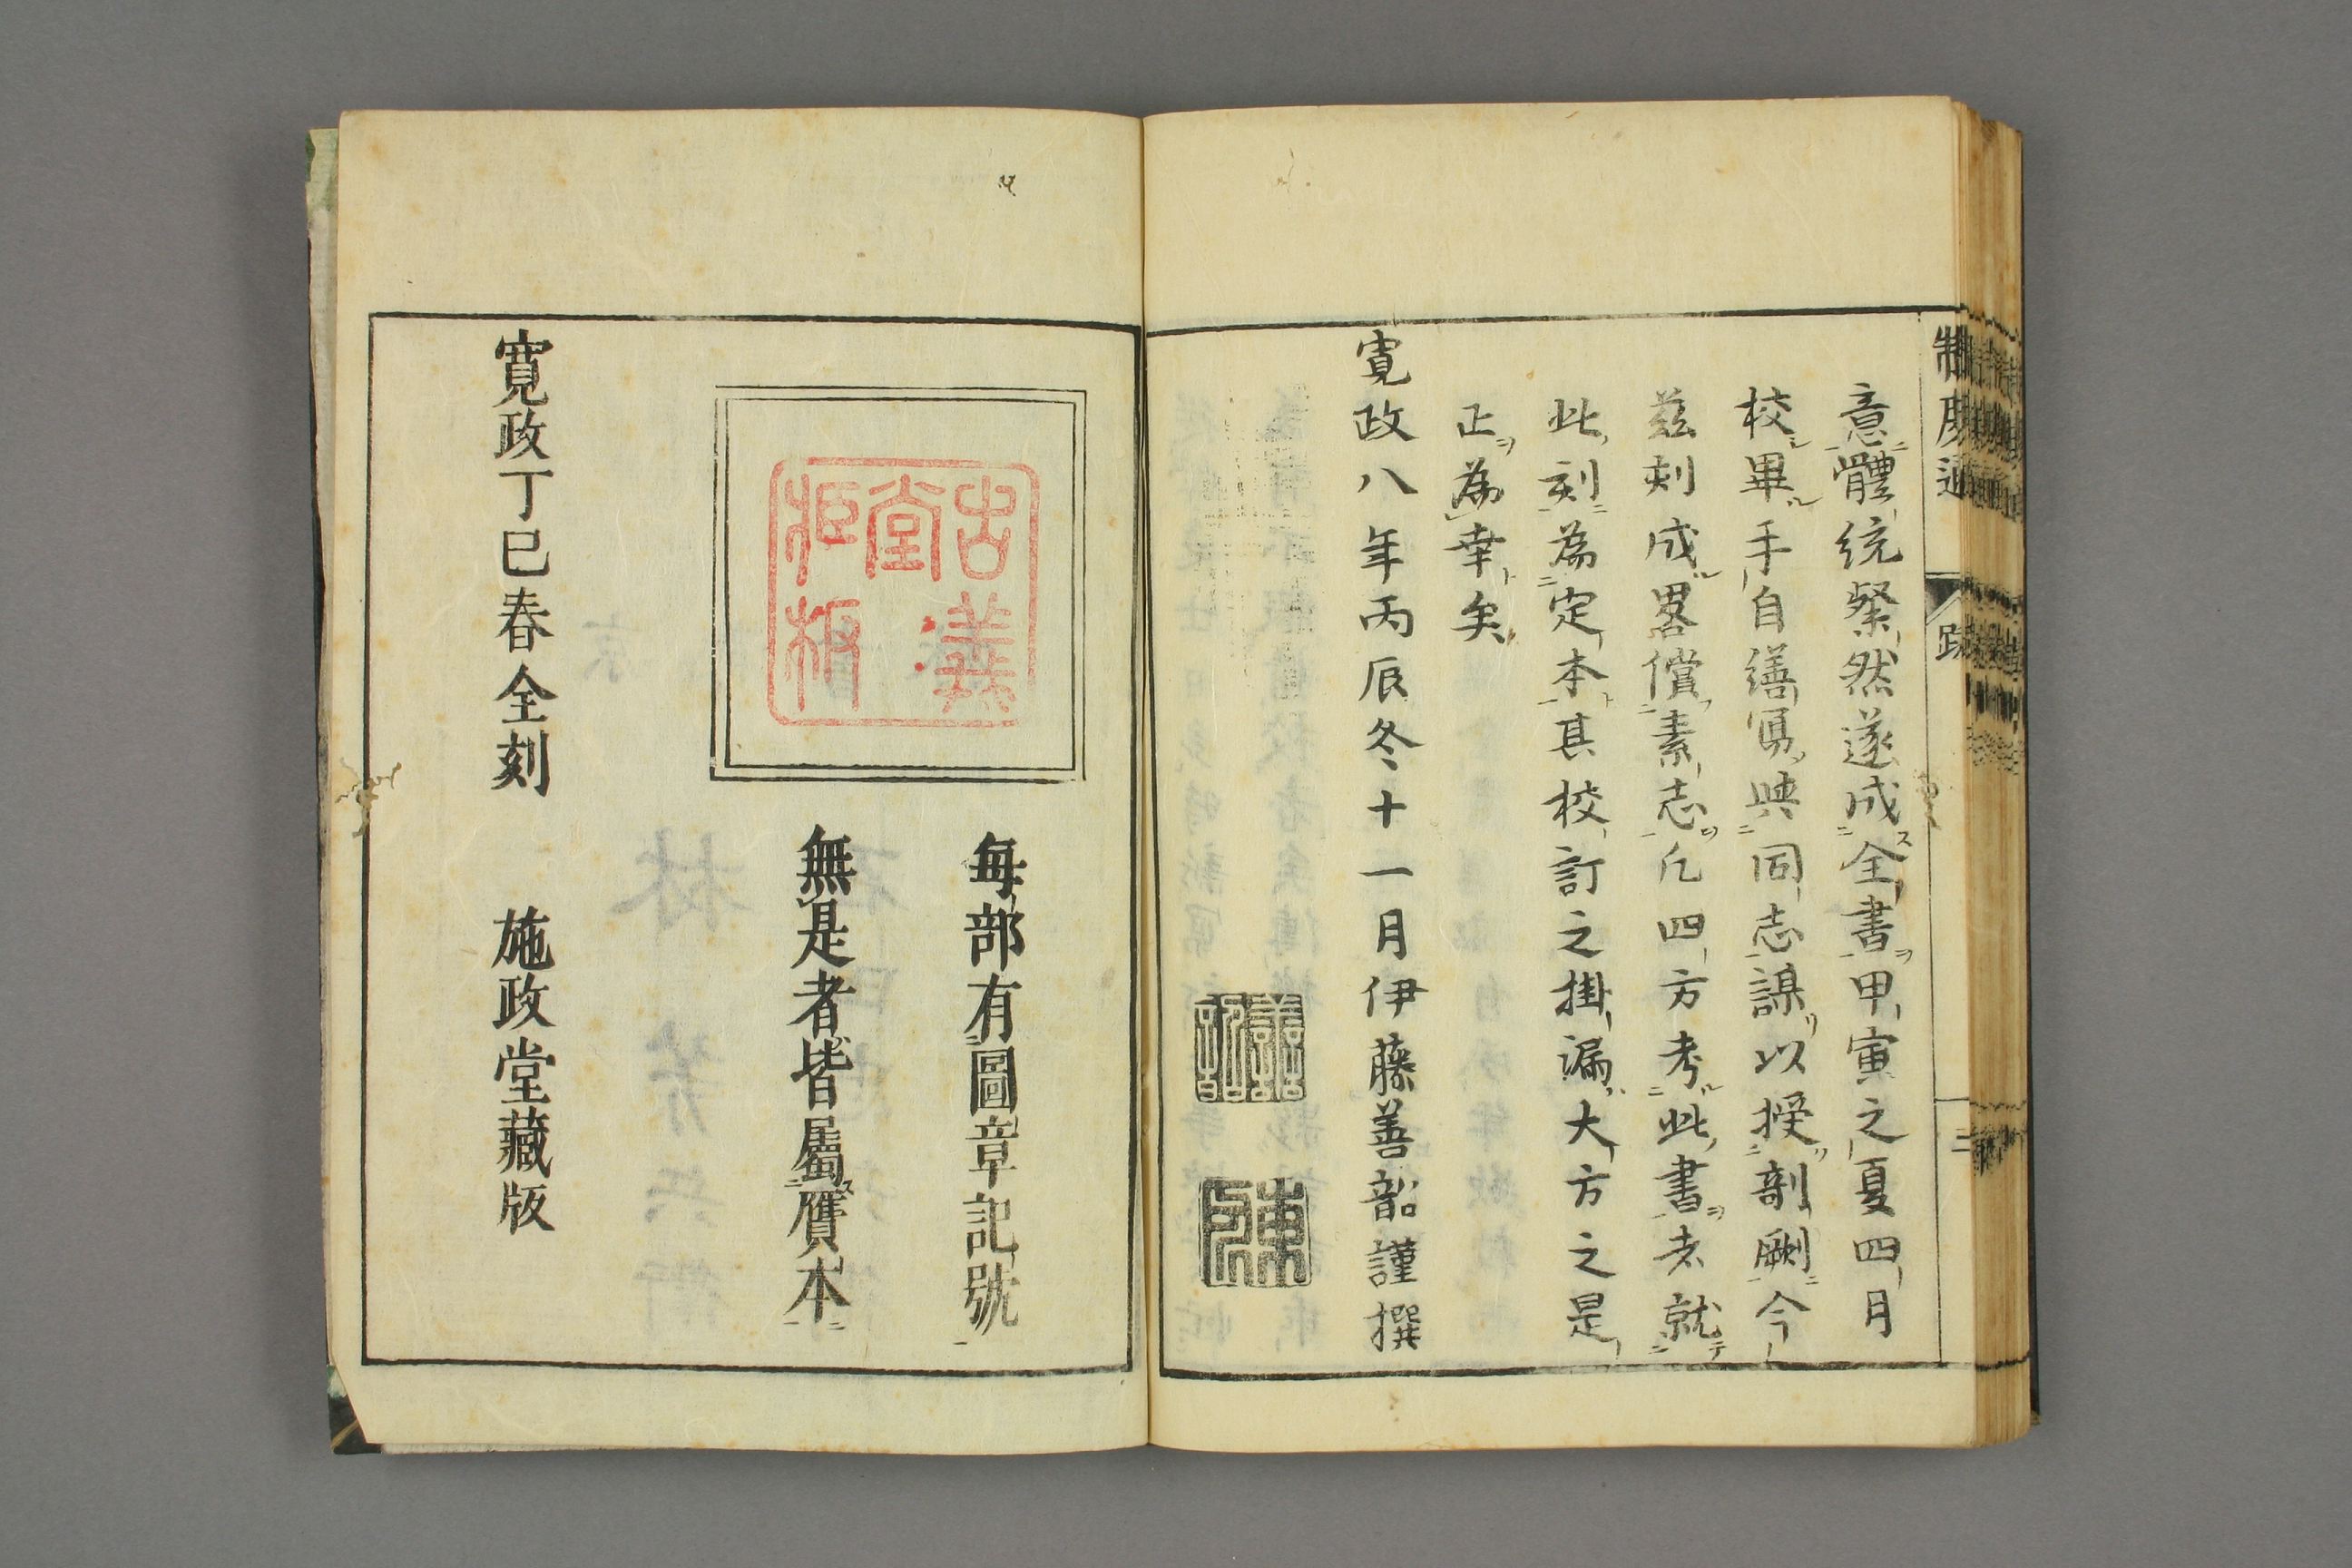 制度通
跋
二
意體統粲然遂成全書甲寅之夏四月
校畢手自繕寫與同志謀以授剞劂今
茲刻成畧償素志凡四方考此書者就
此刻為定本其校訂之掛漏大方之是
正為幸矣
寛政八年丙辰冬十一月伊藤善韶謹撰
善韶
古義
堂
板
每部有圖章記號
無是者皆屬贋本
寛政丁巳春全刻　施政堂藏版